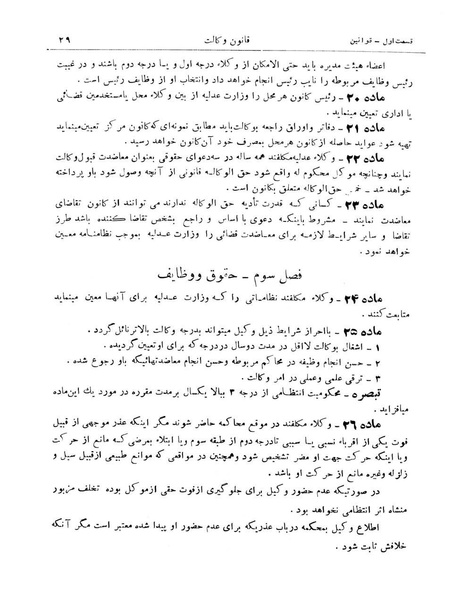 قسمت اول - قوانین
قانون وکالت
۲۹
اعضاء هیئت مدیره باید حتی الامکان از وکلاء درجه اول و یا درجه دوم باشند و در غیبت
رئیس وظایف مربوطه را نایب رئیس انجام خواهد داد وانتخاب او از وظایف رئیس است .
ماده ۲۰ - رئیس کانون هر محل را وزارت عدلیه از بین وکلاء محل یا مستخدمین قضائی
یا اداری تعیین مینماید .
ماده ۲۱ - دفاتر واوراق راجعه بوکالت باید مطابق نمونه‌ای که کانون مرکز تعیین مینماید
تهیه شود عواید حاصله از کانون هر محل بمصرف خود آن کانون خواهد رسید .
ماده ۲۲ - وکلاء عدلیه مکلفند همه ساله در سه دعوای حقوقی بعنوان معاضدت قبول وکالت
نمایند وچنانچه موکل محکوم له واقع شود حق الوکاله قانونی از آنچه وصول شود باو پرداخته
خواهد شد - خمس حق الوکاله متعلق بکانون است .
ماده ۲۳ - کسانی که قدرت تأدیه حق الوکاله ندارند می توانند از کانون تقاضای
معاضدت نمایند - مشروط باینکه دعوی با اساس و راجع بشخص تقاضا کننده باشد طرز
تقاضا و سایر شرایط لازمه برای معاضدت قضائی را وزارت عدلیه بموجب نظامنامه معین
خواهد نمود .
فصل سوم - حقوق ووظایف
ماده ۲۴ - وکلاء مکلفند نظاماتی را که وزارت عدلیه برای آنها معین مینماید
متابعت کنند .
ماده ۲۵ - بااحراز شرایط ذیل وکیل میتواند بدرجه وکالت بالاتر نائل گردد .
۱ - اشتغال بوکالت لااقل در مدت دوسال در درجه که برای او تعیین گردیده .
۲ - حسن انجام وظیفه در محاکم مربوطه وحسن انجام معاضدتهائیکه باو رجوع شده .
۳ - ترقی علمی وعملی در امر وکالت .
تبصره - محکومیت انتظامی از درجه ۳ ببالا یکسال بر مدت مقرره در مورد یك این ماده
میافزاید .
ماده ۲۶ - وکلاء مکلفند در موقع محاکمه حاضر شوند مگر اینکه عذر موجهی از قبیل
فوت یکی از اقرباء نسبی یا سببی تا درجه دوم از طبقه سوم ویا ابتلاء بمرضی که مانع از حرکت
ویا اینکه حرکت جهت او مضر تشخیص شود وهمچنین در مواقعی که موانع طبیعی از قبیل سیل و
زلزله وغیره مانع از حرکت او باشد .
در صورتیکه عدم حضور وکیل برای جلوگیری از فوت حقی از موکل بوده تخلف مزبور
منشاء اثر انتظامی نخواهد بود .
اطلاع وکیل بمحکمه در باب عذریکه برای عدم حضور او پیدا شده معتبر است مگر آنکه
خلافش ثابت شود .